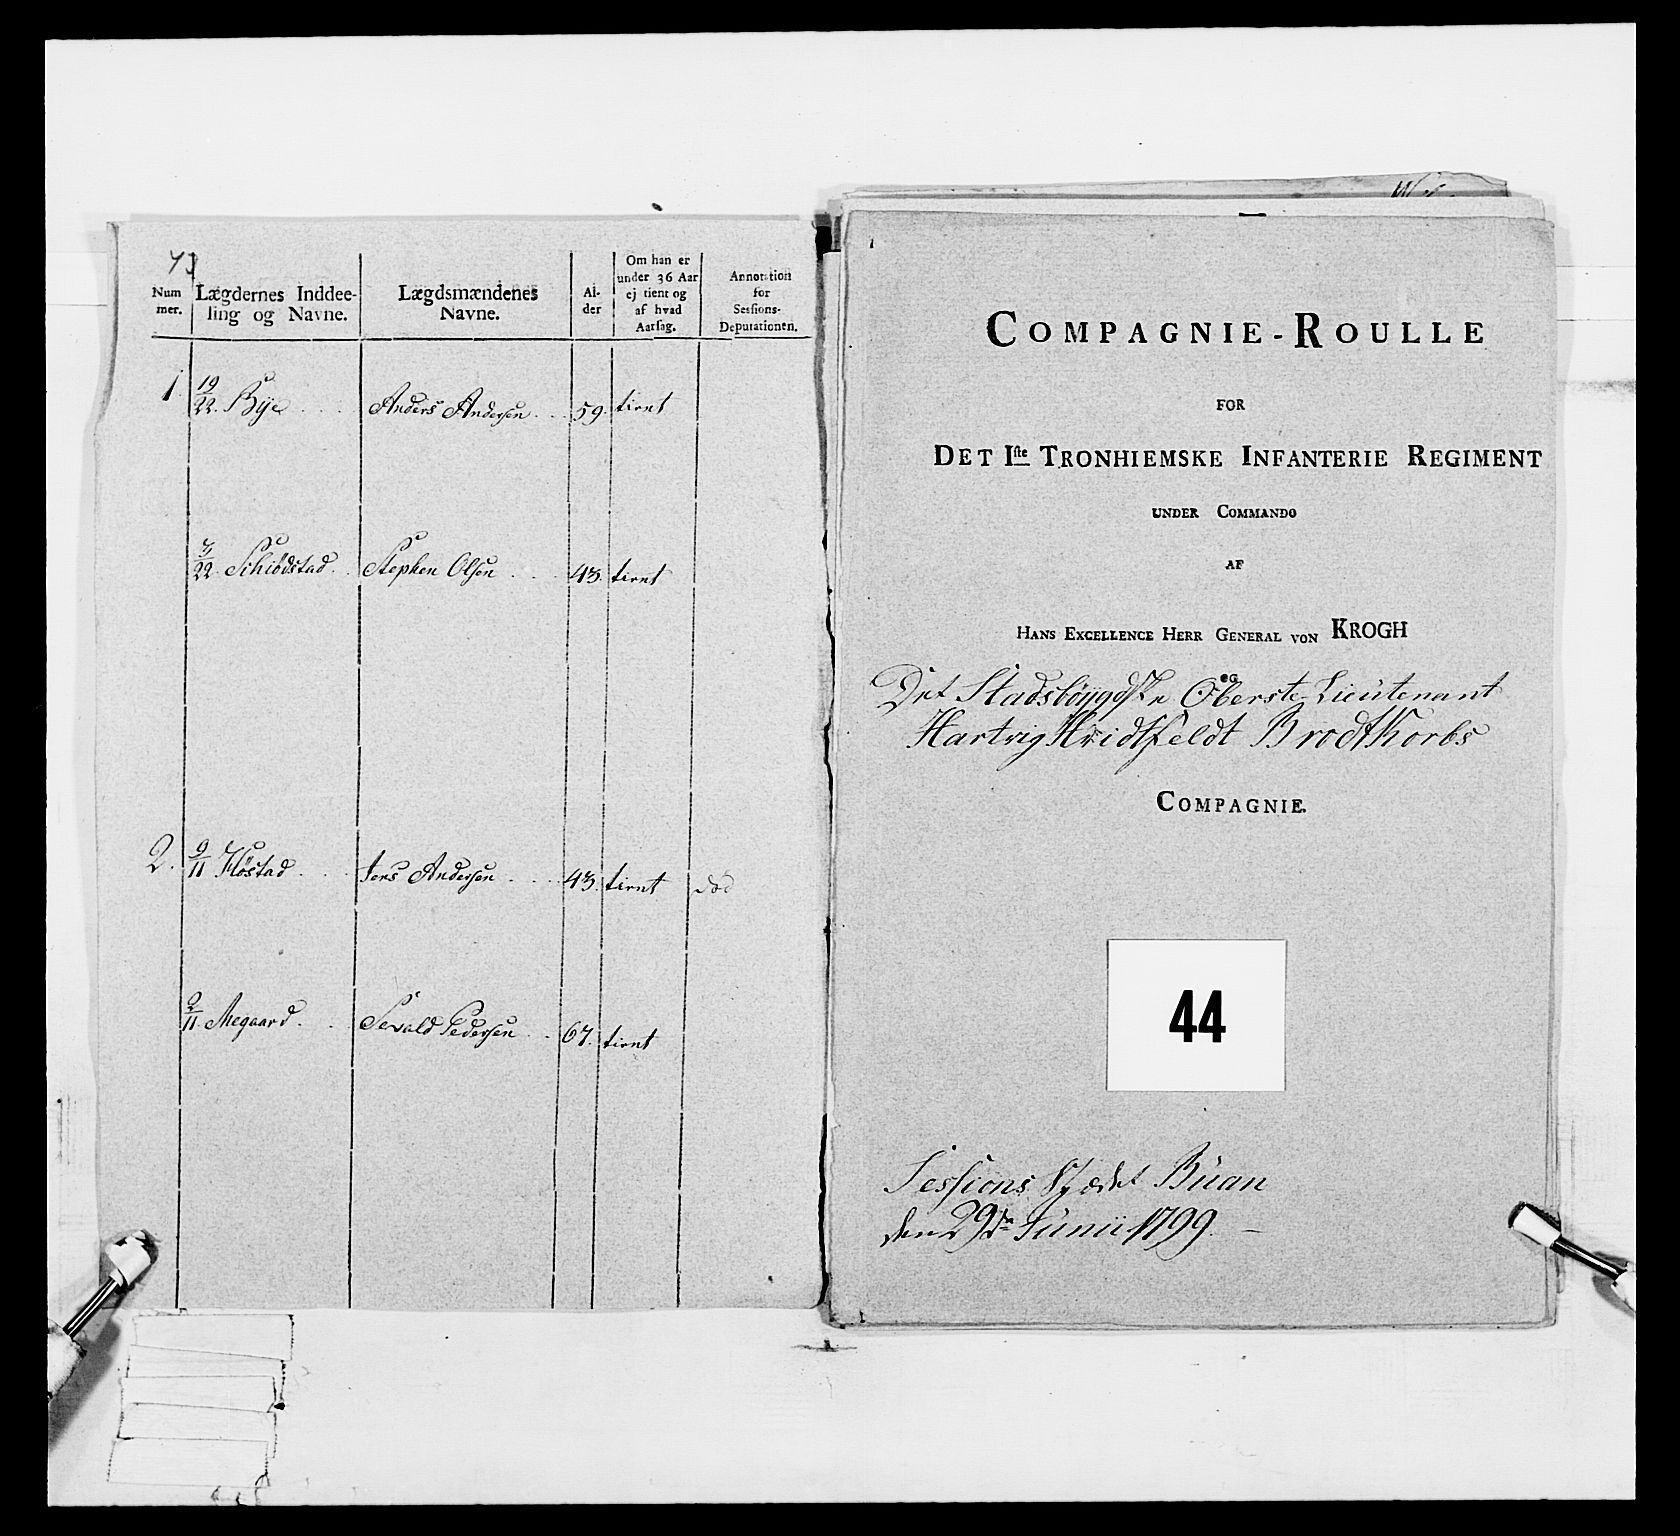 73
Num mer.
Lægdernes Inddee-
ling og Navne.
Lægdsmændenes
Navne.
Al-
der
Om han er
under 36 Aar
ej tient og
af hvad
Aarsag.
Annotation
for
Sessions-
Deputationen.
1. 19/22. Bye Anders Andersen 59. tient
3/22. Schiødstad Stephen Olsen 43. tient
2. 9/11 Høstad Jens Andersen 43. tient død
2/11. Megaard Sevald Pedersen 67. tient
COMPAGNIE-ROULLE
FOR
DET Iste TRONHIEMSKE INFANTERIE REGIMENT
UNDER COMMANDO
AF
HANS EXCELLENCE HERR GENERAL VON KROGH
Det Stadsböÿgdske Oberste-Lieutenant
Hartvig Hvidtfeldt Brodtkorbs
COMPAGNIE.
44
Sessions Stædet Buan
den 29de Junii 1799.